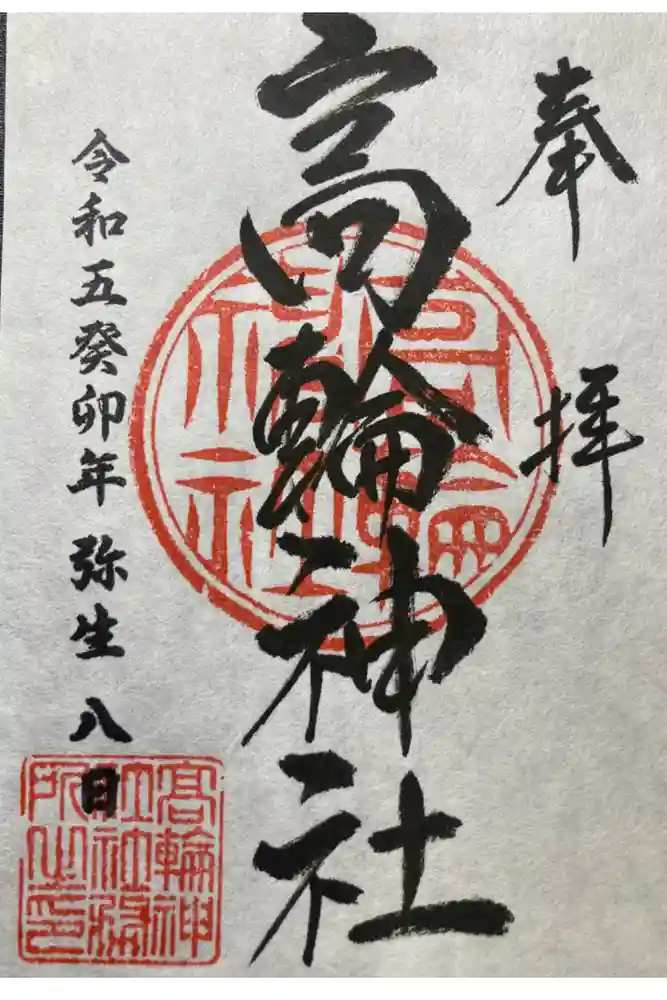 奉拝
高輪神社
令和五癸卯年 弥生 八日
高輪神
社社務
所之印